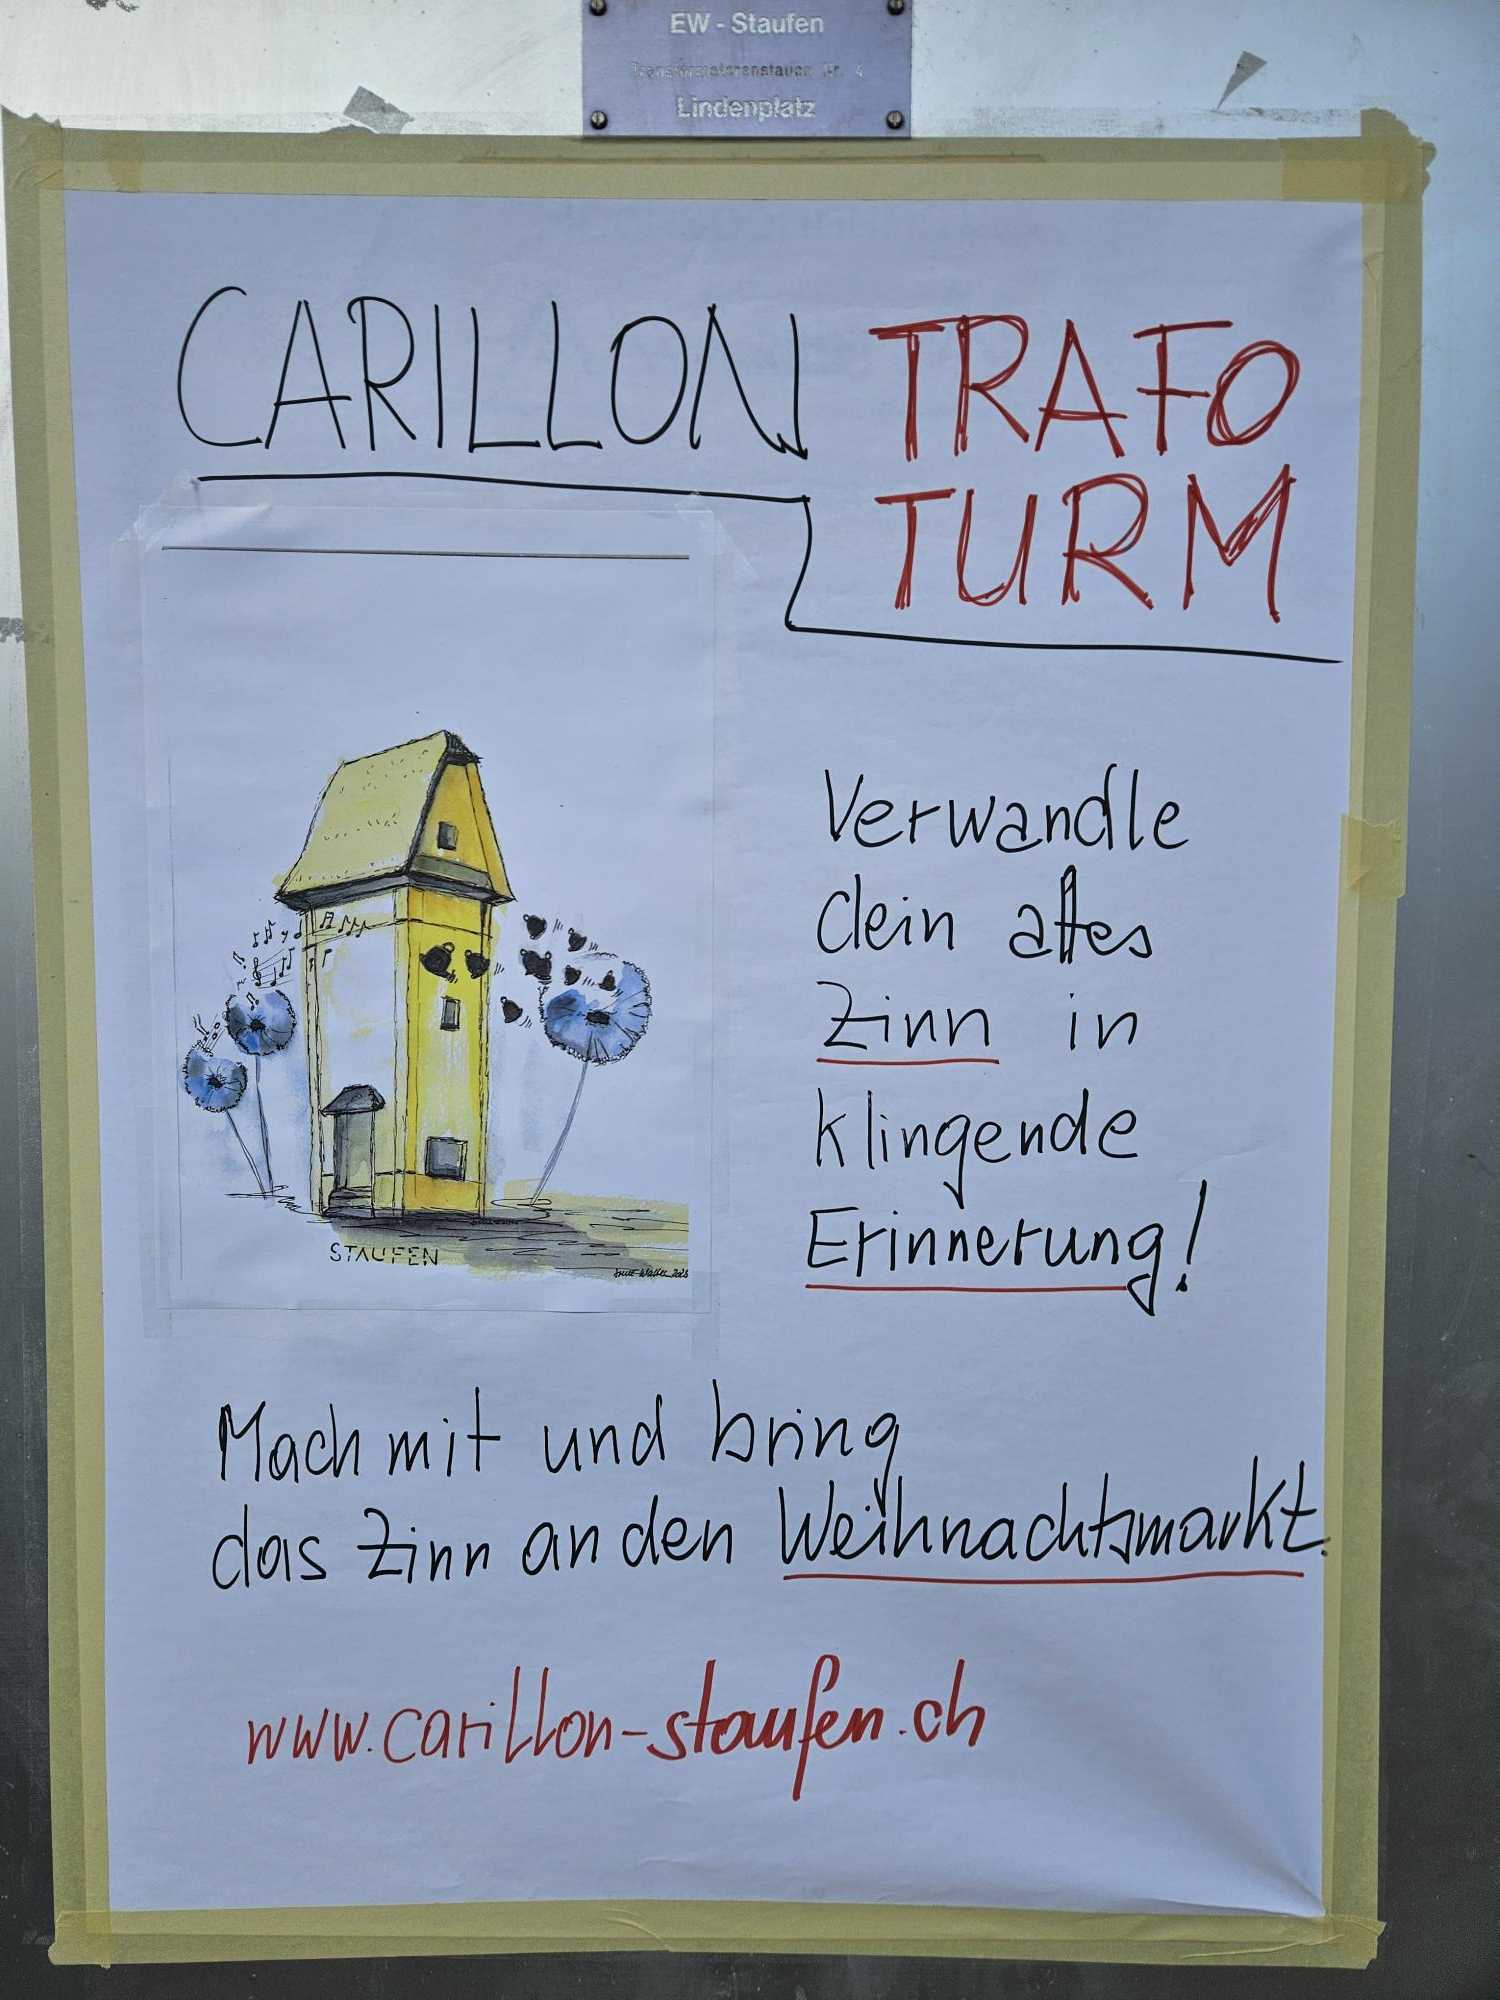 EW - Staufen
Lindenplatz
CARILLON TRAFO
TURM
Verwandle
dein altes
Zinn in
klingende
Erinnerung!
STAUFEN
Mach mit und bring
das Zinn an den Weihnachtsmarkt.
www.carillon-staufen.ch